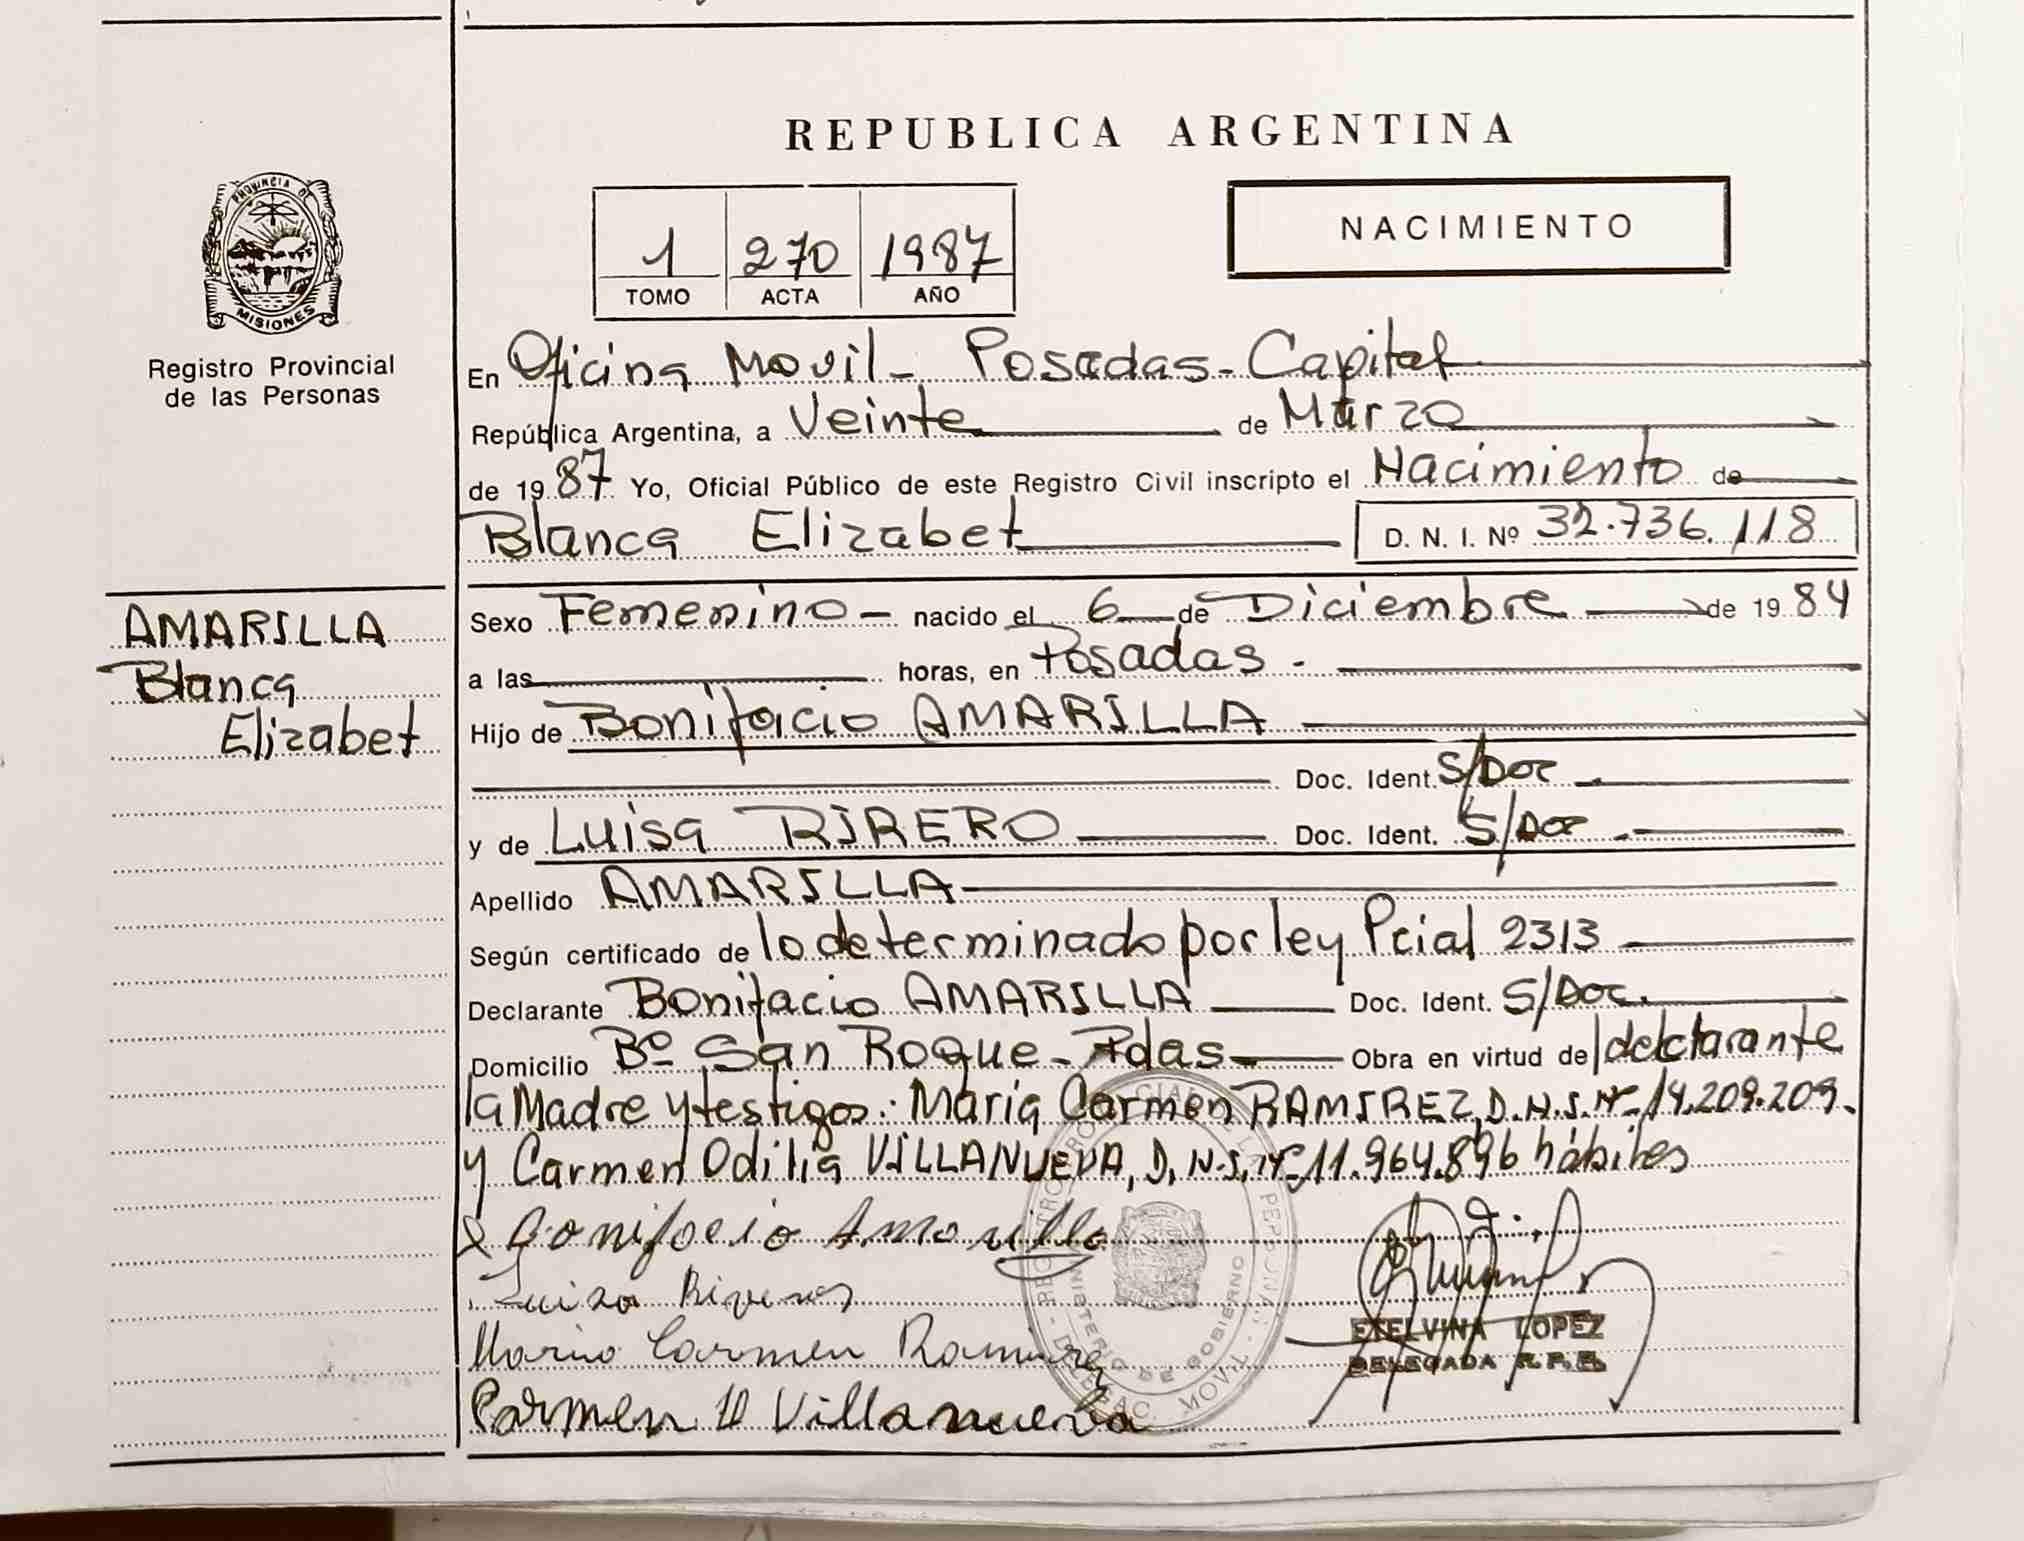 REPUBLICA ARGENTINA
PROVINCIA DE
MISIONES
Registro Provincial
de las Personas
1 270 1987
TOMO ACTA AÑO
NACIMIENTO
En Oficina Movil - Posadas - Capital
República Argentina, a Veinte de Marzo
de 1987 Yo, Oficial Público de este Registro Civil inscripto el Nacimiento de
Blanca Elizabet D. N. I. Nº 32.736.118
AMARILLA
Blanca
Elizabet
Sexo Femenino - nacido el 6 de Diciembre de 1984
a las horas, en Posadas -
Hijo de Bonifacio AMARILLA
Doc. Ident. S/Doc -
y de Luisa RIRERO Doc. Ident. S/Doc -
Apellido AMARILLA
Según certificado de lo determinado por ley Pcial 2313
Declarante Bonifacio AMARILLA Doc. Ident. S/Doc.
Domicilio Bº San Roque - Pdas - Obra en virtud de
la Madre y testigos: Maria Carmen RAMIREZ, D.N.I. Nº 14.209.209.
y Carmen Odilia VILLANUEVA, D.N.I. Nº 11.964.896 hábiles
Bonifacio Amarilla
Luisa
Maria Carmen Ramirez
Carmen O Villanueva
ETELVINA LOPEZ
DELEGADA R.P.P.
MINISTERIO DE GOBIERNO